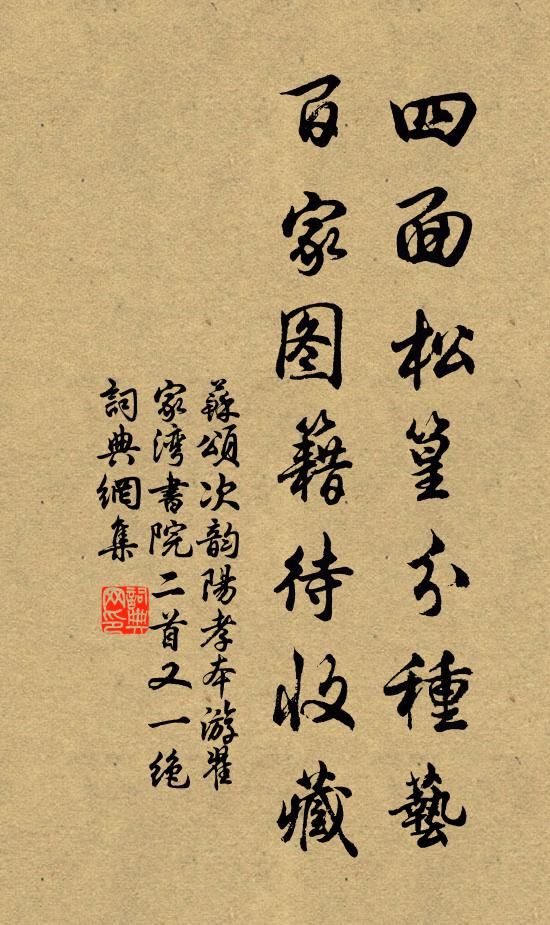 四面松篁分種藝
百家图籍待收藏
蘇頌次韵陽孝本游瞿
家湾書院二首又一绝
詞典網集
詞典网印